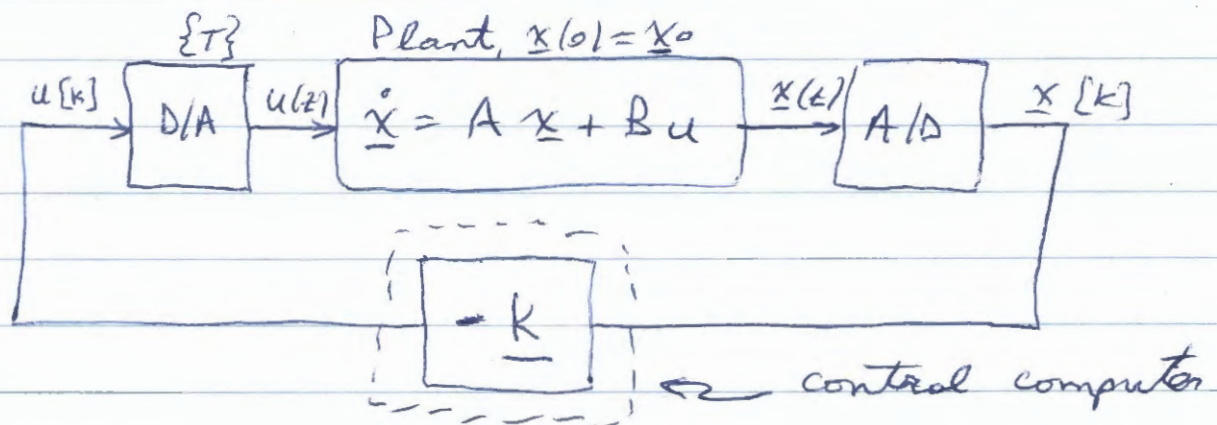 {T}
Plant, x(0) = x0
u[k] D/A u(t) ẋ = A x + B u x(t) A/D x[k]
- K
control computer